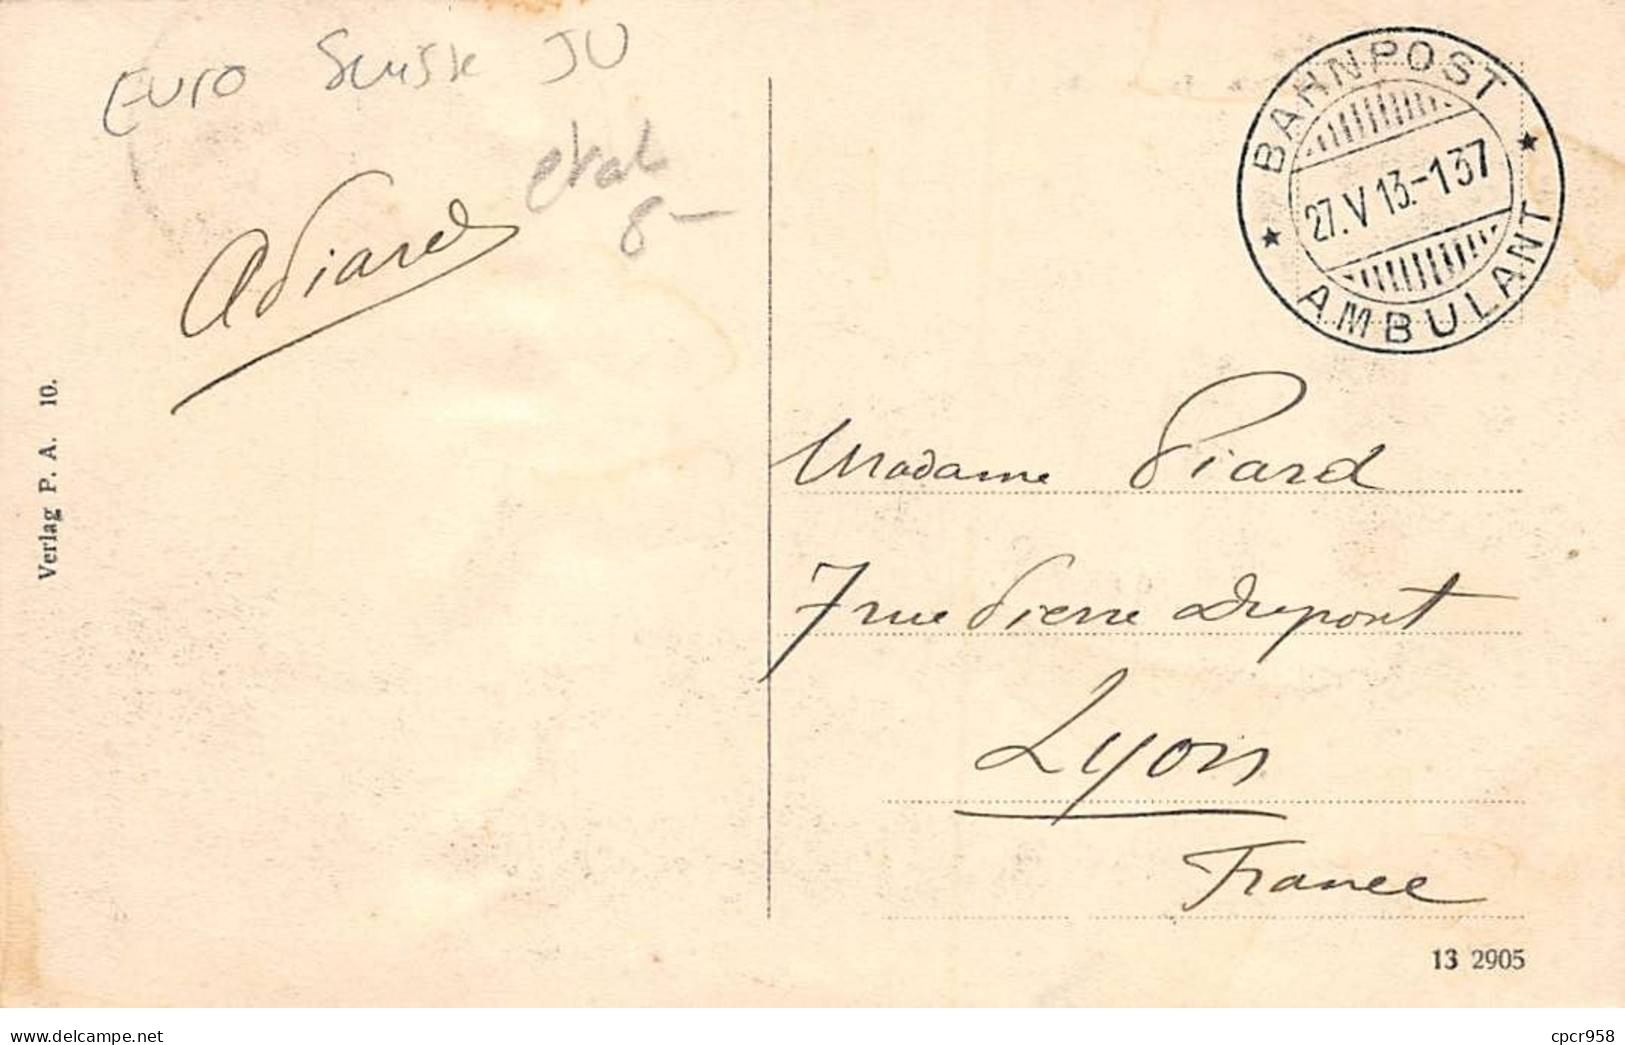 Euro Suisse JU
état
8-
APiard
Verlag P. A. 10.
BAHNPOST
27.V 13.-137
AMBULANT
Madame Piard
7 rue Pierre Dupont
Lyon
France
13 2905
www.delcampe.net
cpcr958